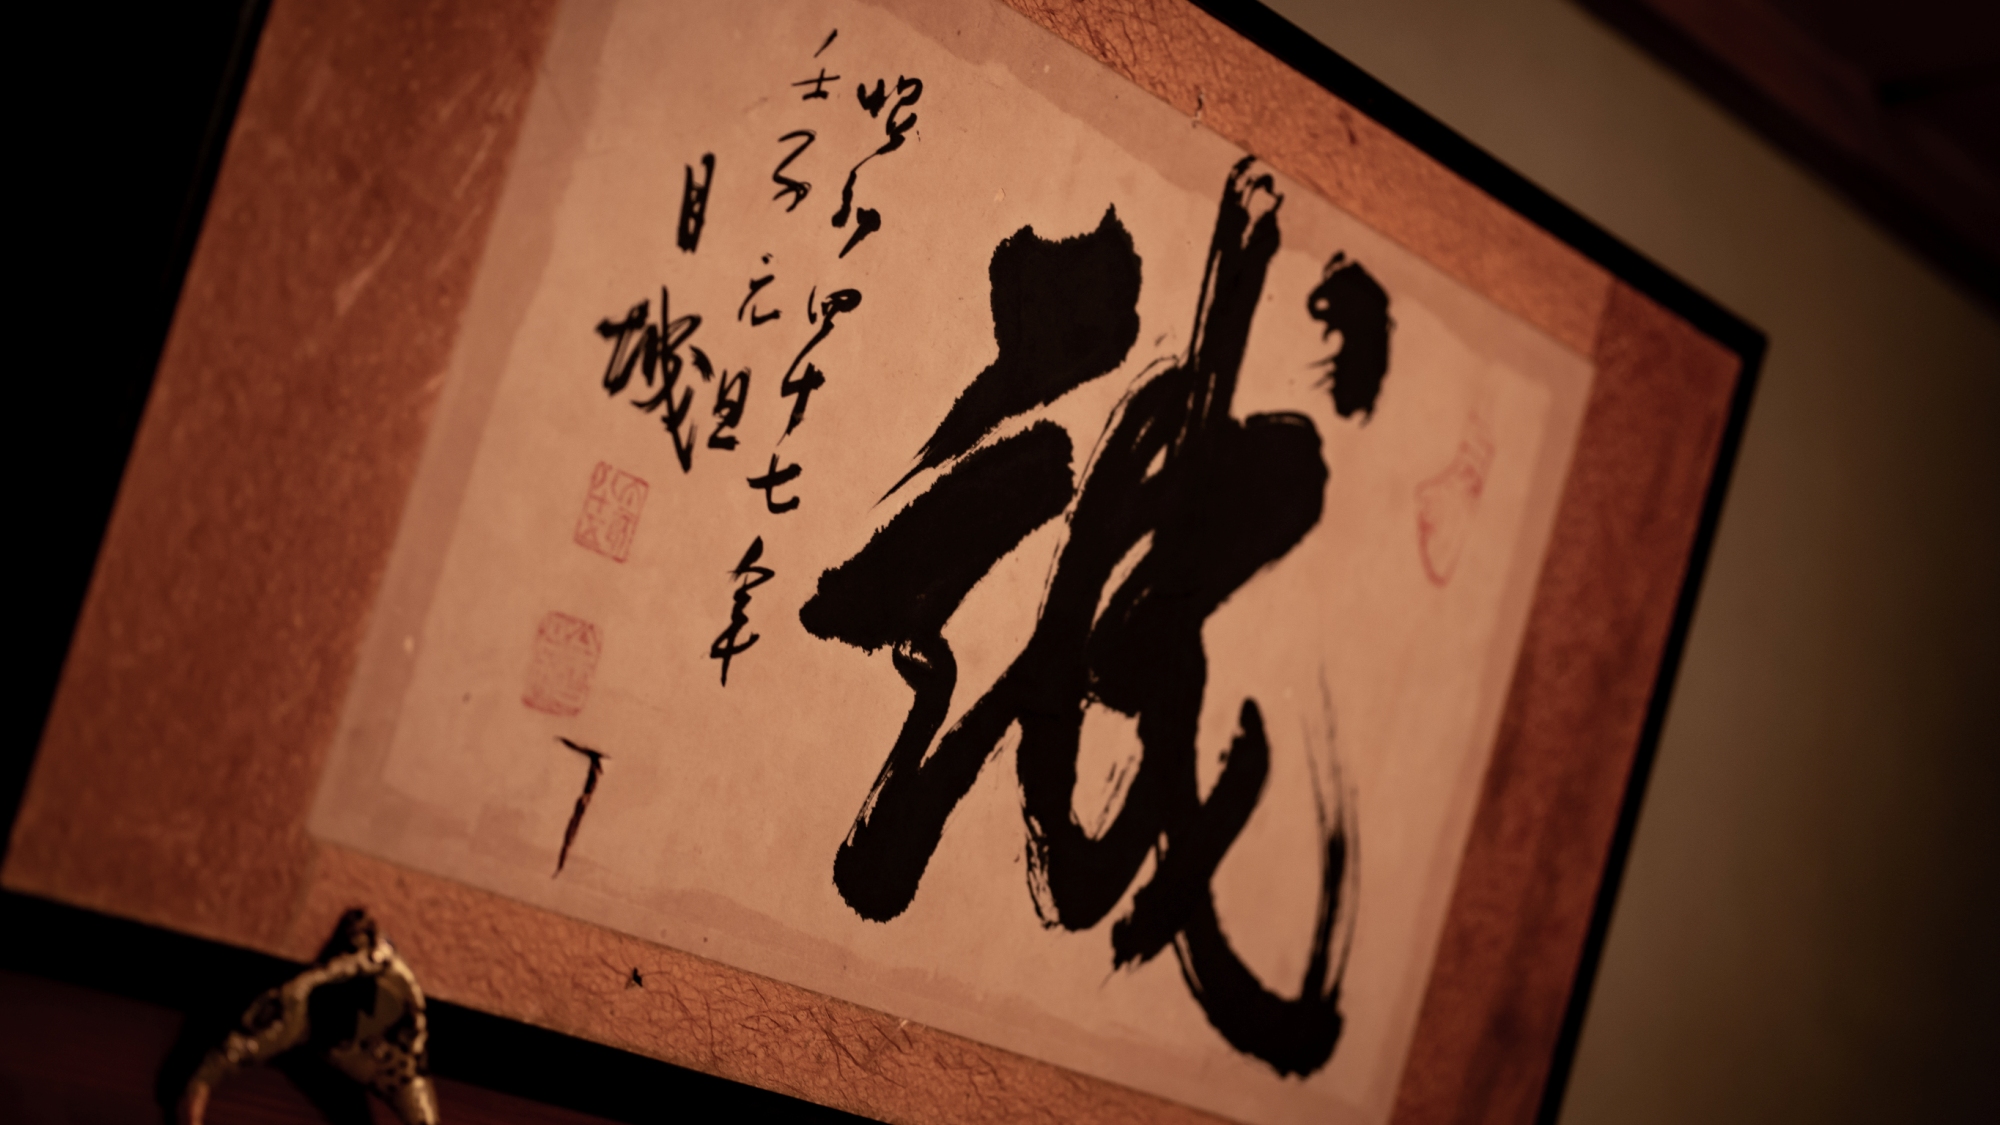 誠
昭和四十七年
壬子元旦
目城